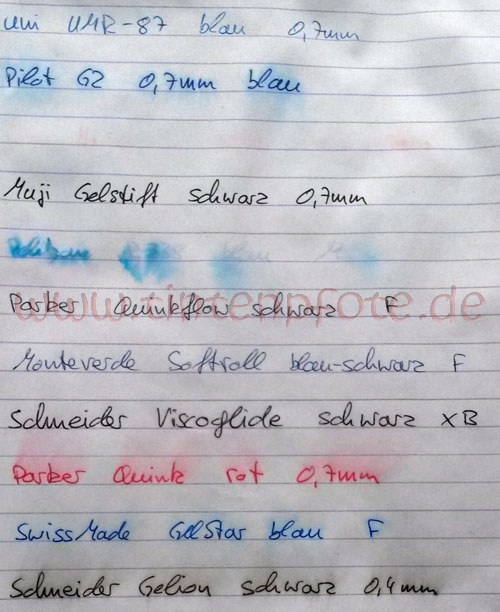 uni UMR-87 blau 0,7mm
Pilot G2 0,7mm blau
Muji Gelstift schwarz 0,7mm
Parker Quinkflow schwarz F
www.tintenpfote.de
Monteverde Softroll blau-schwarz F
Schneider Viscoglide schwarz XB
Parker Quink rot 0,7mm
SwissMade GelStar blau F
Schneider Gelion schwarz 0,4mm